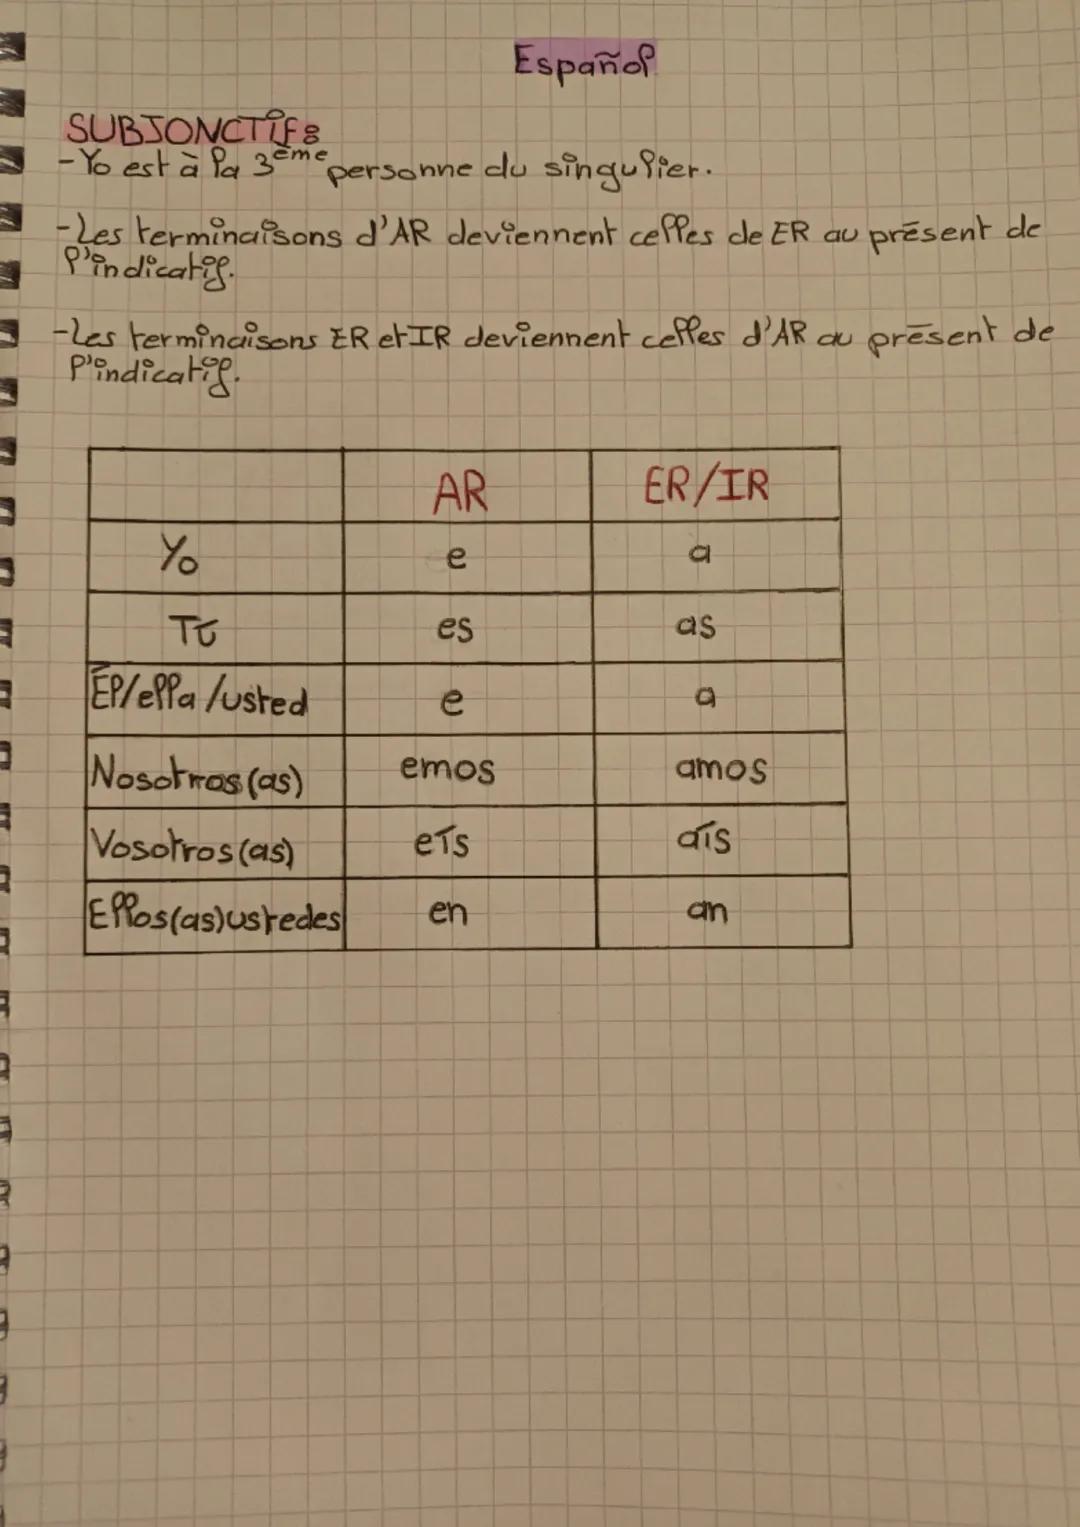 Español
SUBJONCTIF:
- Yo est à la 3ème personne du singulier.
- Les terminaisons d'AR deviennent celles de ER au présent de
l'indicatif.
- Les terminaisons ER et IR deviennent celles d'AR au présent de
l'indicatif.
AR ER/IR
Yo e a
Tú es as
Él/ella/usted e a
Nosotros(as) emos amos
Vosotros(as) eís aís
Ellos(as)ustedes en an